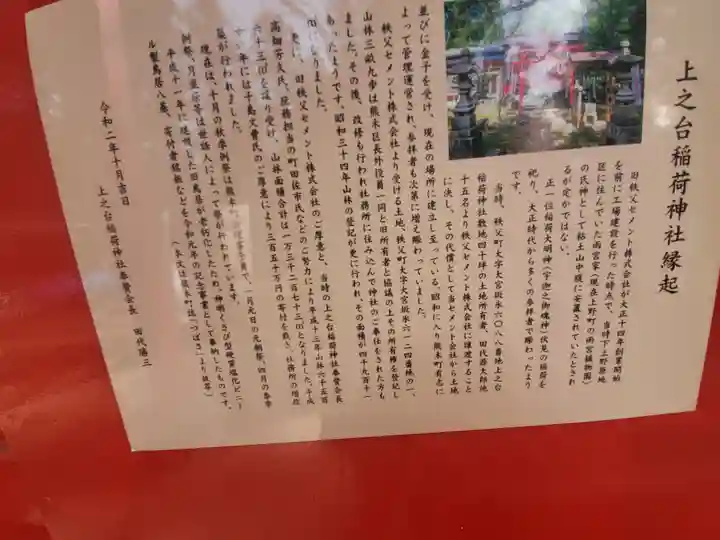 上之台稲荷神社縁起
旧秩父セメント株式会社が大正十四年創業開始
を前に工場建設を行った時点で、当時下上野原地
区に住んでいた雨宮家（現在上野町の雨宮植物園）
の氏神として粘土山中腹に安置されていたとされ
るが定かではない。
正一位稲荷大明神（宇迦之御魂神）伏見の稲荷を
祀り、大正時代から多くの参拝者で賑わったよう
です。
当時、秩父町大字大宮坂氷六〇八八番地上之台
稲荷神社敷地四十坪の土地所有者、田代源太郎他
十五名より秩父セメント株式会社に譲渡すること
に決し、その代償として当セメント会社から土地
並びに金子を受け、現在の場所に建立し至っている。昭和に入り熊木町有志に
よって管理運営され、参拝者も次第に増え賑わっていました。
秩父セメント株式会社より受ける土地、秩父町大字大宮坂氷六一二四番地の一、
山林三畝九歩は熊木区長外役員一同と旧所有者と協議の上その所有権を登記し
ました。その後、改修も行われ社務所に住み込んで神社のご奉仕をされた方も
あったようです。昭和三十四年山林の登記が更に行われ、その面積が四千九百十一
㎡になりました。
更に、旧秩父セメント株式会社のご厚意と、当時の上之台稲荷神社奉賛会長
高畑芳久氏、庶務担当の町田佐市氏などのご努力により平成十三年山林六千五百
六十三㎡を譲り受け、山林面積合計は一万三千二百七十三㎡となりました。平成
年には千島文費氏のご厚意により三百五十万円の寄付を戴き、社務所の増改
築が行われました。
現在は、十月の秋季例祭は熊木町 一月元日の元朝祭、四月の春季
例祭、月並祭等は世話人によって祭が行われています。
平成十一年に建順した旧鳥居が老朽化したため、神明 さび 硬質塩化ビニー
ル製鳥居八基、寄付者銘板などを令和元年の記念事業として奉納したものです。
（本文は熊木町誌「つばさ」より抜萃）
令和二年十月吉日
上之台稲荷神社奉賛会長　田代勝三